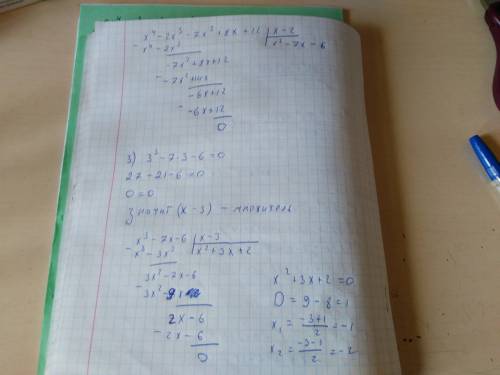 x⁴ - 2x³ - 7x² + 8x + 12 | x - 2
- x⁴ - 2x³ | x³ - 7x - 6
-7x² + 8x + 12
- -7x² + 14x
-6x + 12
- -6x + 12
0
3) 3³ - 7·3 - 6 = 0
27 - 21 - 6 = 0
0 = 0
Значит (x - 3) - множитель
x³ - 7x - 6 | x - 3
- x³ - 3x² | x² + 3x + 2
3x² - 7x - 6
- 3x² - 9
2x - 6
- 2x - 6
0
x² + 3x + 2 = 0
D = 9 - 8 = 1
x₁ = (-3+1)/2 = -1
x₂ = (-3-1)/2 = -2